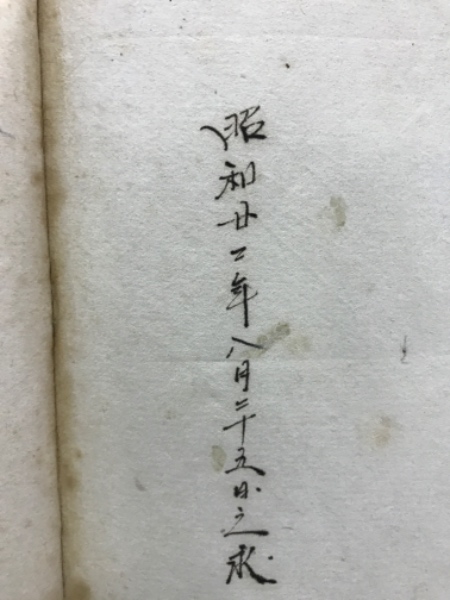 昭和廿二年八月二十五日之求